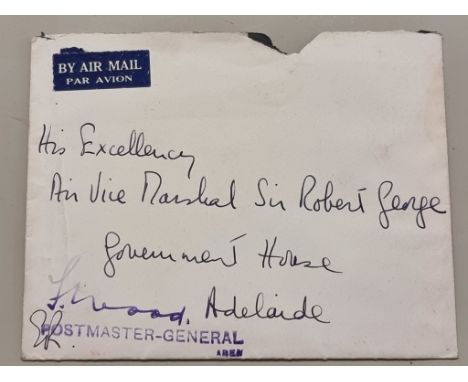 BY AIR MAIL
PAR AVION
His Excellency
Air Vice Marshal Sir Robert George
Government House
Adelaide
POSTMASTER-GENERAL